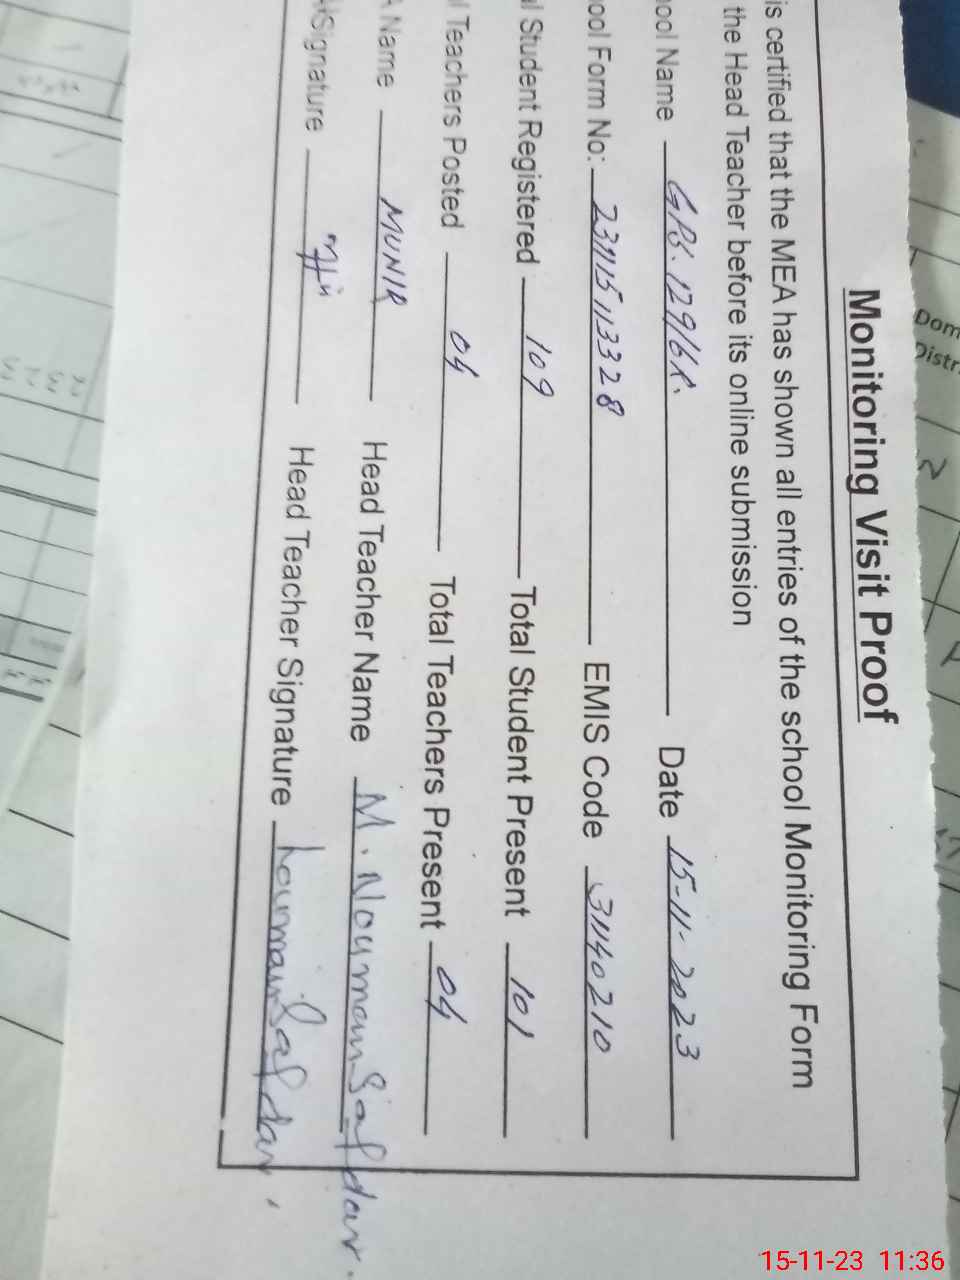 Monitoring Visit Proof
is certified that the MEA has shown all entries of the school Monitoring Form
the Head Teacher before its online submission
ool Name GPS. 129/6R. Date 15-11-2023
ool Form No: 23115113328 EMIS Code 31140210
l Student Registered 109 Total Student Present 101
l Teachers Posted 04 Total Teachers Present 04
A Name MUNIR Head Teacher Name M. Nouman Safdar.
Signature Head Teacher Signature Nouman Safdar.
Dom
Distr
15-11-23 11:36